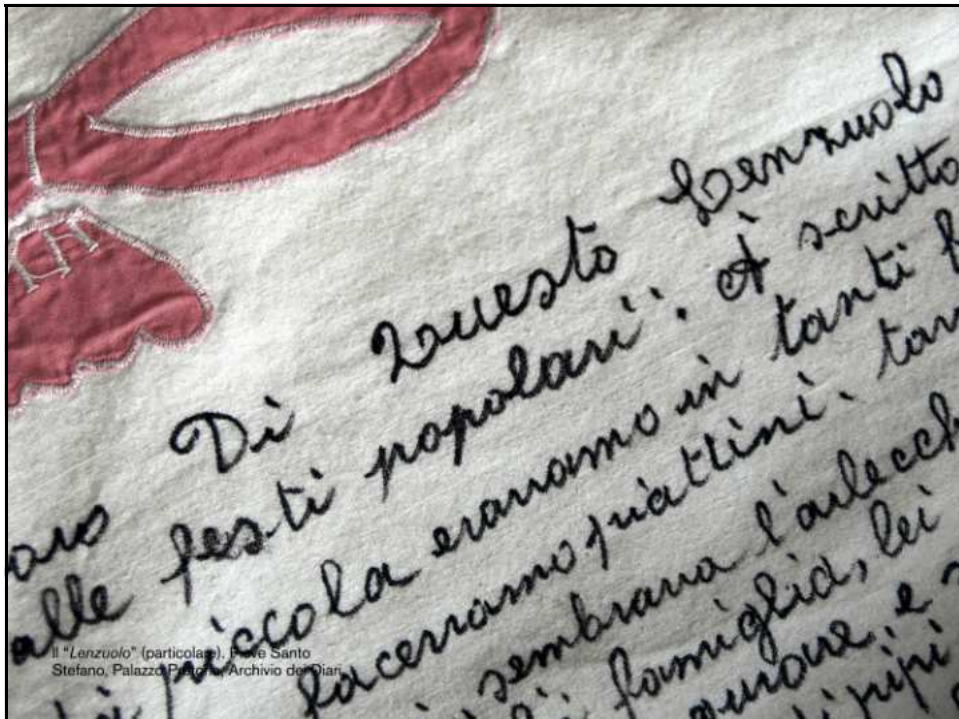 Di Questo Lenzuolo
alle festi popolari". È scritto
piccola eravamo in tanti
facevamo piattini.
sembrava l'arlecch
famiglia, lei
e
Il "Lenzuolo" (particolare). Pieve Santo
Stefano, Palazzo Pretorio, Archivio dei Diari.